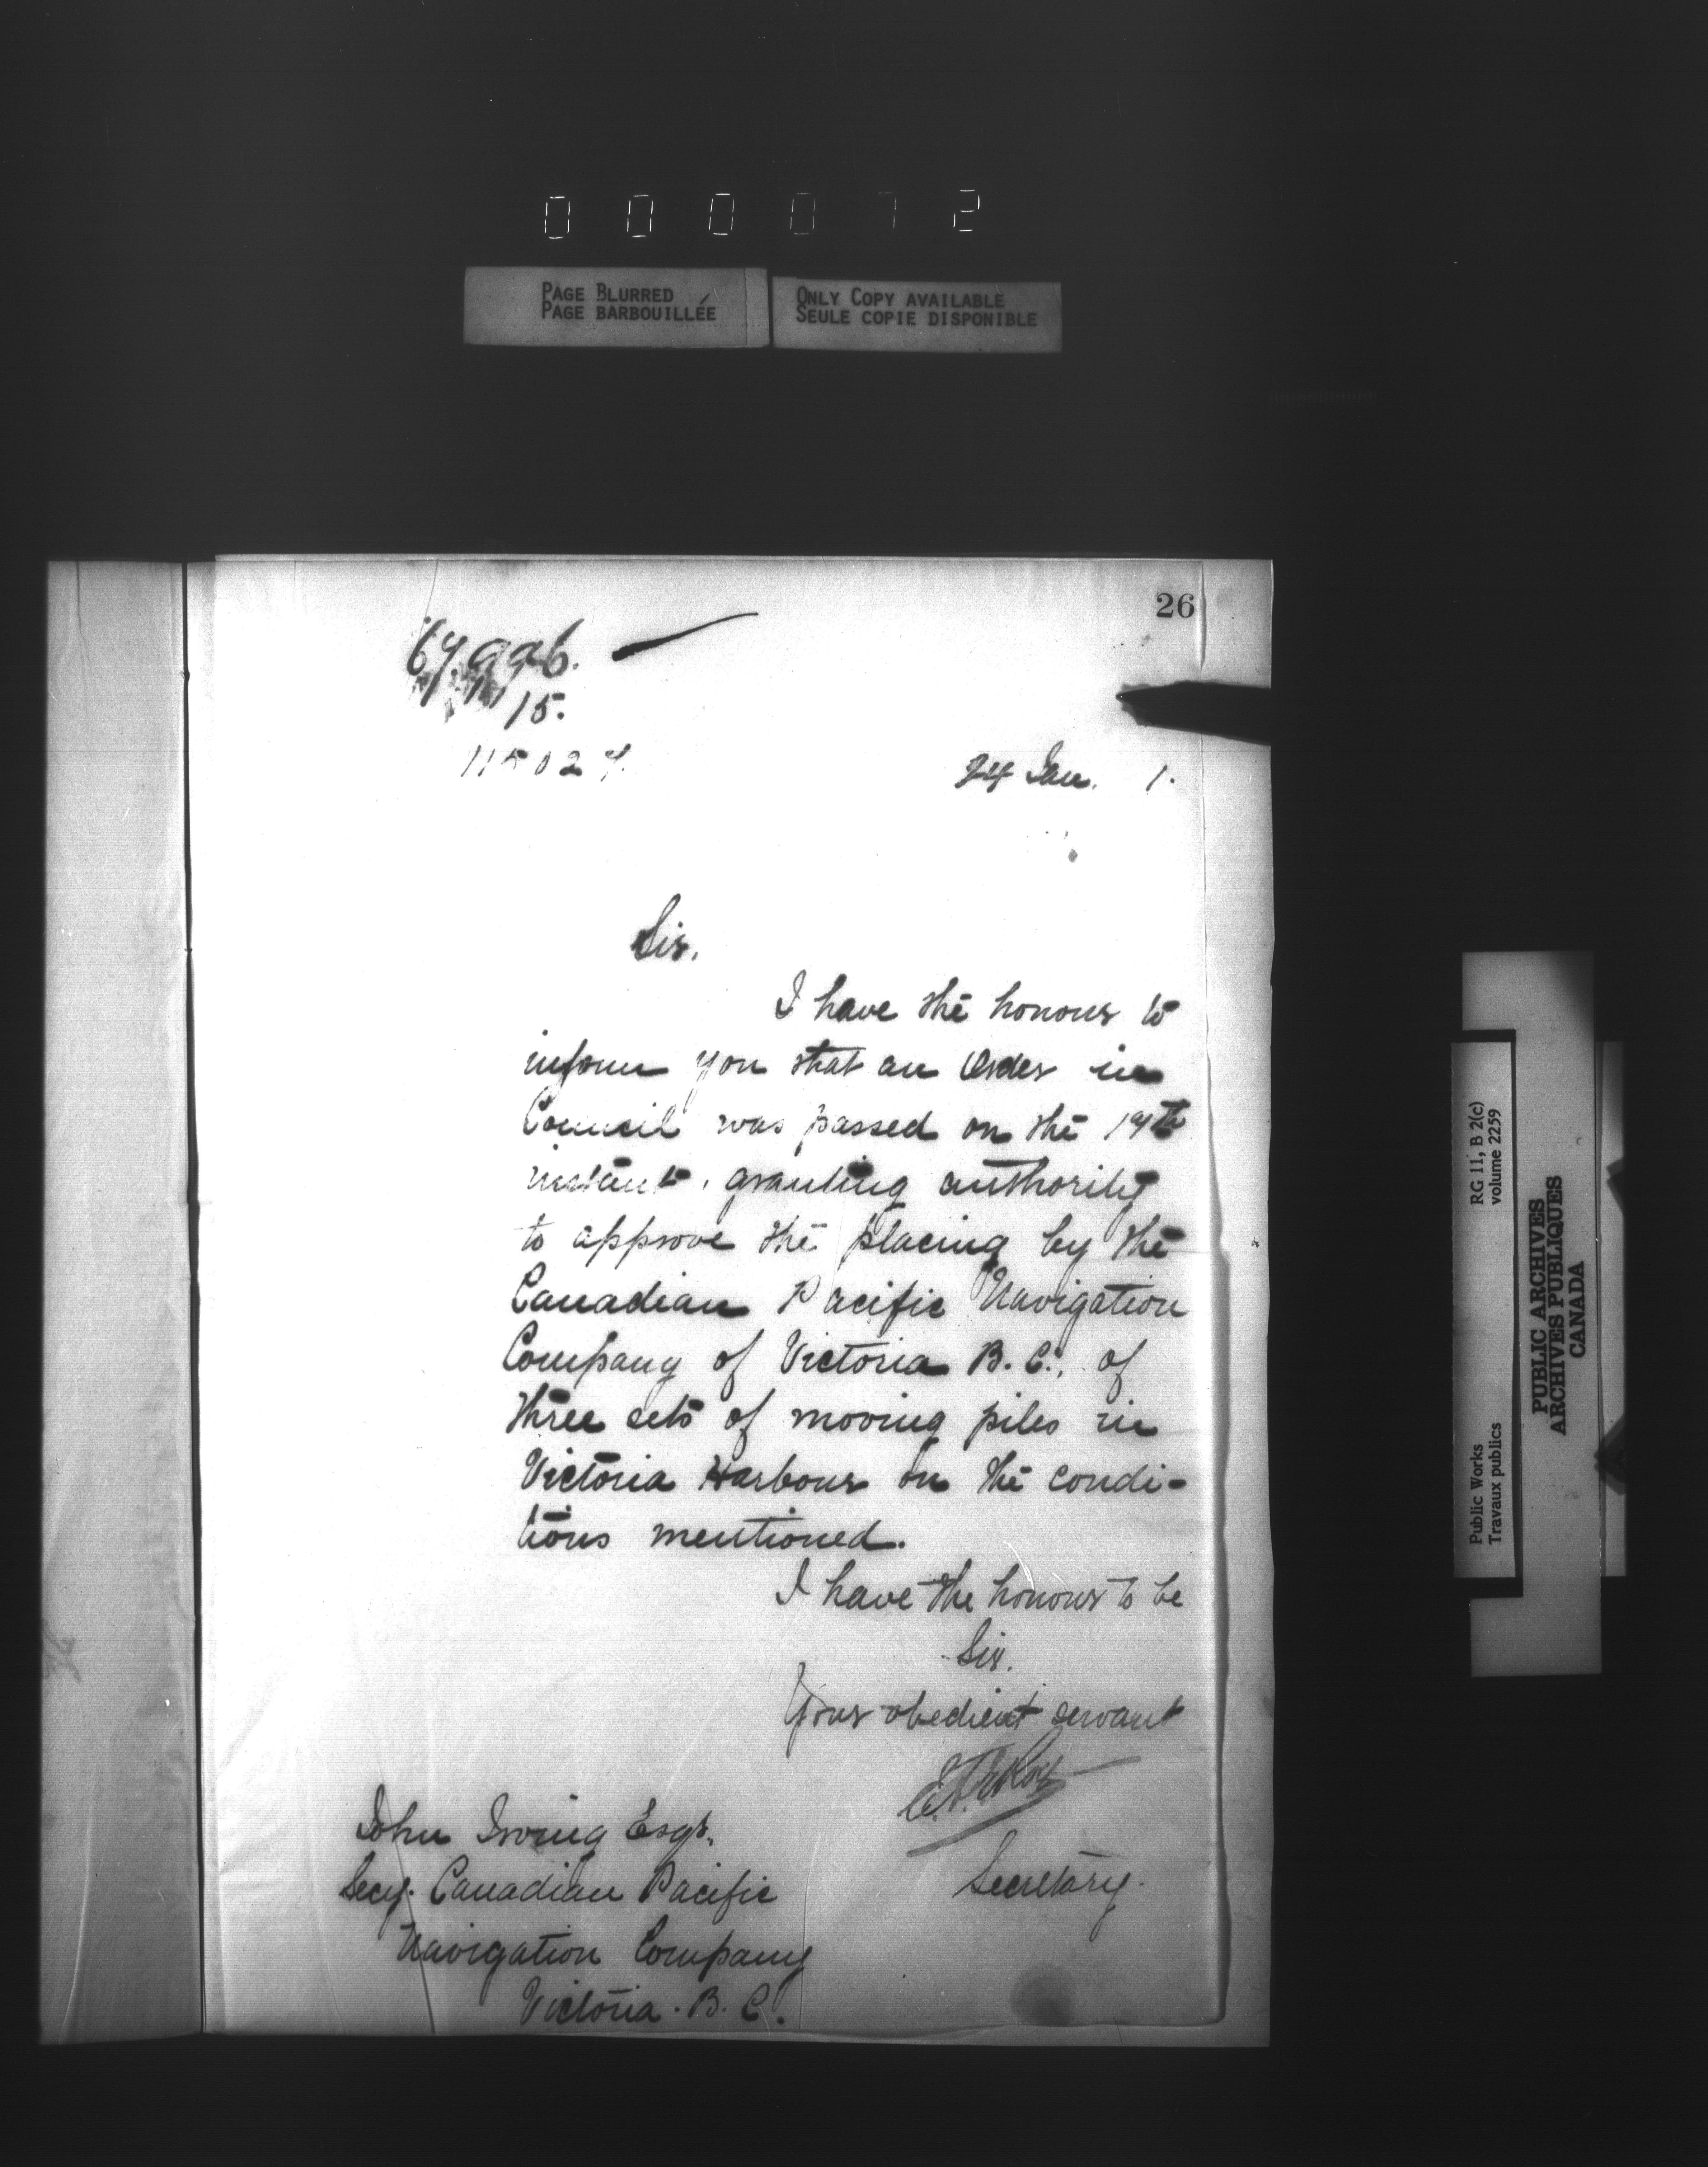 000072
PAGE BLURRED
PAGE BARBOUILLÉE
ONLY COPY AVAILABLE
SEULE COPIE DISPONIBLE
26
15.
24 Jan. 1.
Sir,
I have the honour to
inform you that an Order in
Council was passed on the 19th
instant, granting authority
to approve the placing by the
Canadian Pacific Navigation
Company of Victoria B.C., of
three sets of mooring piles in
Victoria Harbour on the condi-
tions mentioned.
I have the honour to be
Sir.
Your obedient servant
Secretary.
John Irving Esqr.
Secy. Canadian Pacific
Navigation Company
Victoria. B.C.
Public Works
Travaux publics
RG 11, B 2(c)
volume 2259
PUBLIC ARCHIVES
ARCHIVES PUBLIQUES
CANADA